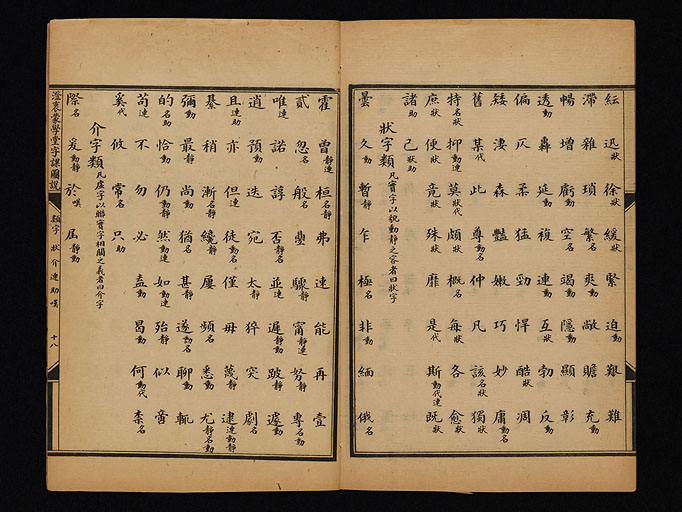 紜 迅狀 徐狀 緩狀 緊 迫動 艱 難
滯 雜 瑣 繁名 爽動 敞 贍 充動
暢 增動 虧動 空名 竭動 隱動 顯 彰
透動 轟 延動 複 連動 互狀 勃 反動
偏 仄 柔 猛 勁 悍 酷狀 凋
矮 淒 森 豔 嫩 巧 妙 庸動名
舊 某代 此 尊動名 仲 凡 該名狀 獨狀
特名狀 抑動連 莫狀代 頗狀 概名 每狀 各 愈狀
庶狀 便狀 竟狀 殊狀 靡 是代 斯動代連 既狀
諸助 已狀助
狀字類 凡實字以貌動靜之容者曰狀字
曇 久動 暫靜 乍 極名 非動 緬 俄名
霍 曾靜連 桓名靜 弗 速 能 再 壹
貳 忽名 般名 亟 驟靜 甯靜連 努靜 專名動
唯連 諾 諄 否靜名 並連 遲動靜 跛靜 遽動
逍 預動 迭 宛 太靜 猝 突 劇名
且連助 亦 但連 徒動名 僅 毋 蔑靜 逮連動靜
綦 稍 漸名靜 纔靜 屢 頻名 悉動 尤靜名動
彌動 最靜 尚動 猶名 甚靜 遂動名 聊動 輒
的名助 恰動 仍動靜 然動連 如動連 殆靜 似 啻
苟連 不 勿 必 盍動 曷動 何動代 柰名
奚代 攸 常名 只助
介字類 凡虛字以聯實字相關之義者曰介字
際名 爰動靜 於嘆 爲靜動
澄衷蒙學堂字課圖說 類字 狀介連助嘆 十八